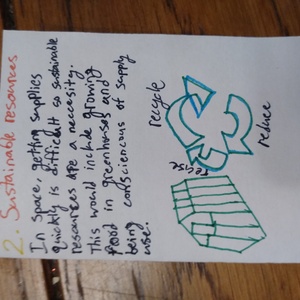 2. Sustainable resources
In space, getting supplies
quickly is difficult so sustainable
resources are a neccesity.
This would include growing
food in greenhouses and
consciencous of supply
being use.
recycle
reduce
reuse